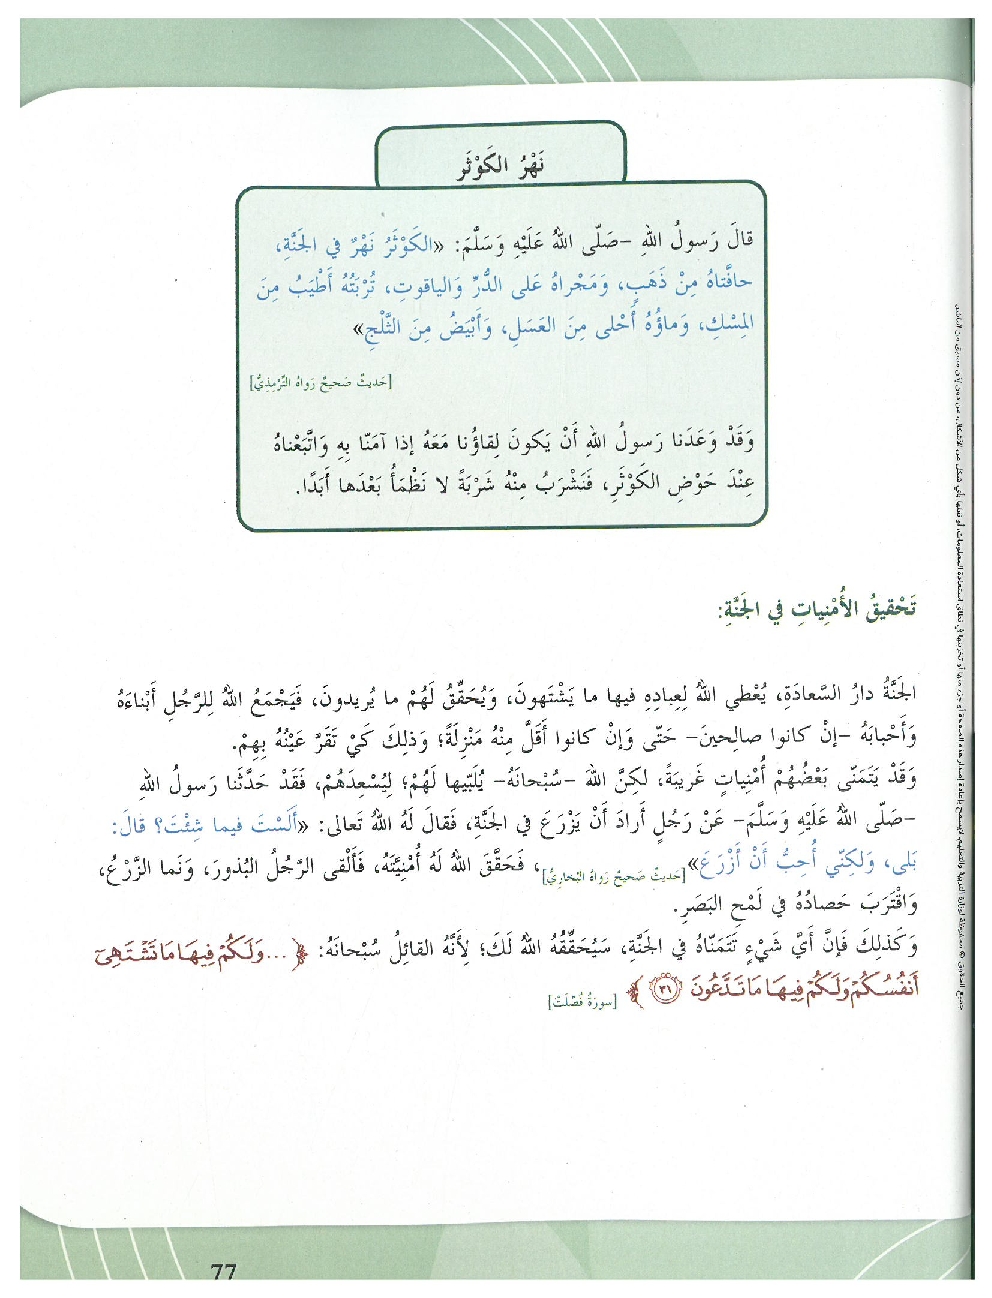 نَهْرُ الكَوْثَرِ
قالَ رَسولُ اللهِ -صَلّى اللهُ عَلَيْهِ وَسَلَّمَ: «الكَوْثَرُ نَهْرٌ في الجَنَّةِ،
حافَّتاهُ مِنْ ذَهَبٍ، وَمَجْراهُ عَلى الدُّرِّ وَالياقوتِ، تُرْبَتُهُ أَطْيَبُ مِنَ
المِسْكِ، وَماؤُهُ أَحْلى مِنَ العَسَلِ، وَأَبْيَضُ مِنَ الثَّلْجِ»
[حَديثٌ صَحيحٌ رَواهُ التِّرْمِذِيُّ]
وَقَدْ وَعَدَنا رَسولُ اللهِ أَنْ يَكونَ لِقاؤُنا مَعَهُ إذا آمَنّا بِهِ وَاتَّبَعْناهُ
عِنْدَ حَوْضِ الكَوْثَرِ، فَنَشْرَبُ مِنْهُ شَرْبَةً لا نَظْمَأُ بَعْدَها أَبَدًا.
تَحْقيقُ الأُمْنِياتِ في الجَنَّةِ:
الجَنَّةُ دارُ السَّعادَةِ، يُعْطي اللهُ لِعِبادِهِ فيها ما يَشْتَهونَ، وَيُحَقِّقُ لَهُمْ ما يُريدونَ، فَيَجْمَعُ اللهُ لِلرَّجُلِ أَبْناءَهُ
وَأَحْبابَهُ -إنْ كانوا صالِحينَ- حَتّى وَإنْ كانوا أَقَلَّ مِنْهُ مَنْزِلَةً؛ وَذلِكَ كَيْ تَقَرَّ عَيْنُهُ بِهِمْ.
وَقَدْ يَتَمَنّى بَعْضُهُمْ أُمْنِياتٍ غَريبَةً، لكِنَّ اللهَ -سُبْحانَهُ- يُلَبّيها لَهُمْ؛ لِيُسْعِدَهُمْ، فَقَدْ حَدَّثَنا رَسولُ اللهِ
-صَلّى اللهُ عَلَيْهِ وَسَلَّمَ- عَنْ رَجُلٍ أَرادَ أَنْ يَزْرَعَ في الجَنَّةِ، فَقالَ لَهُ اللهُ تَعالى: «أَلَسْتَ فيما شِئْتَ؟ قالَ:
بَلى، وَلكِنّي أُحِبُّ أَنْ أَزْرَعَ»[حَديثٌ صَحيحٌ رَواهُ البُخارِيُّ]، فَحَقَّقَ اللهُ لَهُ أُمْنِيَّتَهُ، فَأَلْقى الرَّجُلُ البُذورَ، وَنَما الزَّرْعُ،
وَاقْتَرَبَ حَصادُهُ في لَمْحِ البَصَرِ.
وَكَذلِكَ فَإنَّ أَيَّ شَيْءٍ تَتَمَنّاهُ في الجَنَّةِ، سَيُحَقِّقُهُ اللهُ لَكَ؛ لِأَنَّهُ القائِلُ سُبْحانَهُ: ﴿ ...وَلَكُمْ فِيهَا مَا تَشْتَهِىٓ
أَنفُسُكُمْ وَلَكُمْ فِيهَا مَا تَدَّعُونَ ٣١ ﴾ [سورَةُ فُصِّلَتْ]
77